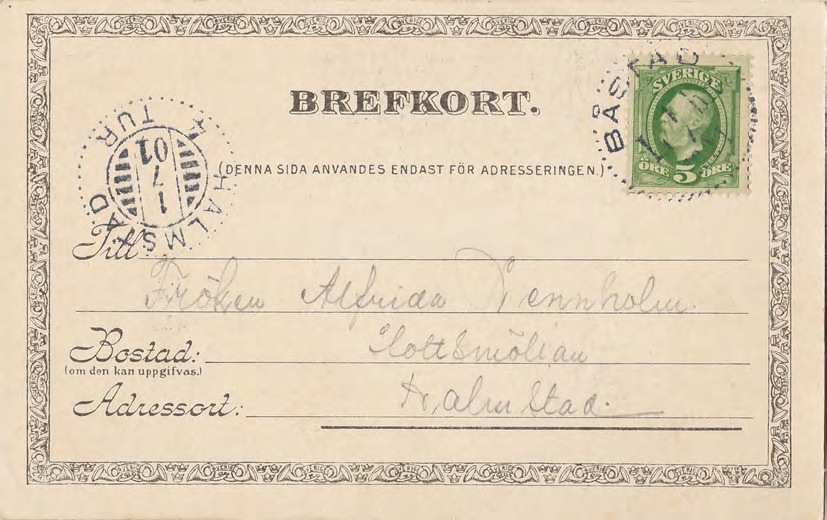 BREFKORT.
(DENNA SIDA ANVANDES ENDAST FÖR ADRESSERINGEN.)
SVERIGE
ÖRE 5 ÖRE
BÅSTAD
HALMSTAD
4 TUR
1
7
01
Till
Fröken Alfrida Wennholm.
Bostad:
Slottsmölian
(om den kan uppgifvas.)
Adressort:
Halmstad.